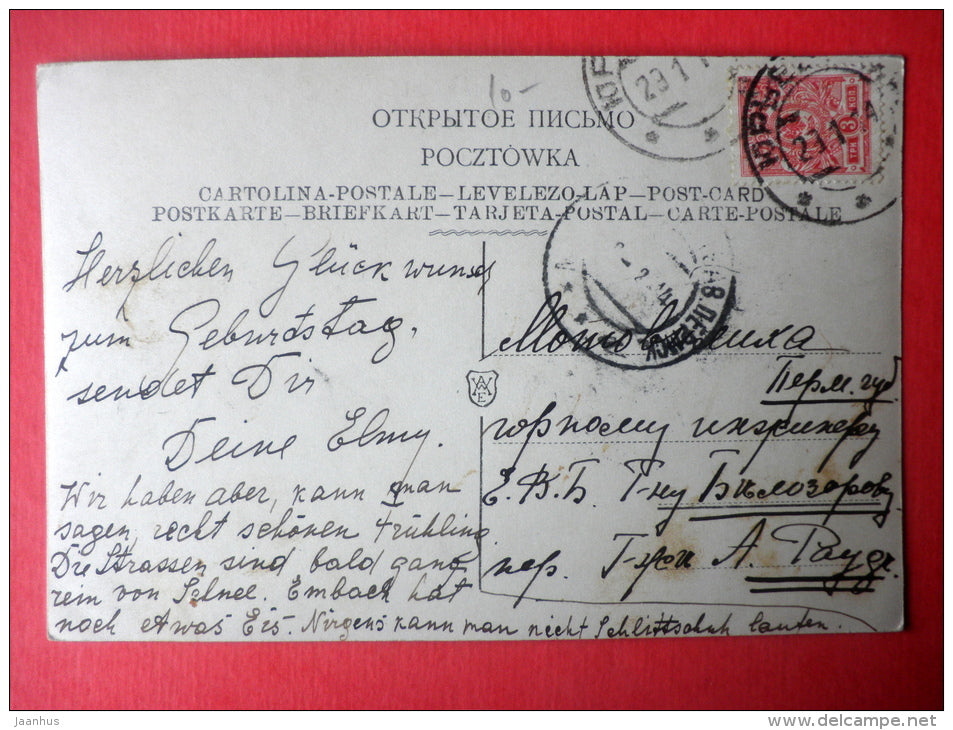 10-
ОТКРЫТОЕ ПИСЬМО
POCZTÓWKA
CARTOLINA-POSTALE – LEVELEZO-LAP – POST-CARD
POSTKARTE – BRIEFKART – TARJETA-POSTAL – CARTE-POSTALE
ЮРЬЕ
29 1
3 КОП
ТРИ
Herzlichen Glückwunsch
zum Geburtstag,
sendet Dir
Deine Elmy.
Wir haben aber, kann man
sagen, recht schönen Frühling.
Die Strassen sind bald ganz
rein von Schnee. Embach hat
noch etwas Eis. Nirgens kann man nicht Schlittschuh laufen.
WAE
Перм. губ.
горному инженеру
Е. В. Б. Г-ну Билозорову
пер. Г-жи А. Рауд
Jaanhus
www.delcampe.net